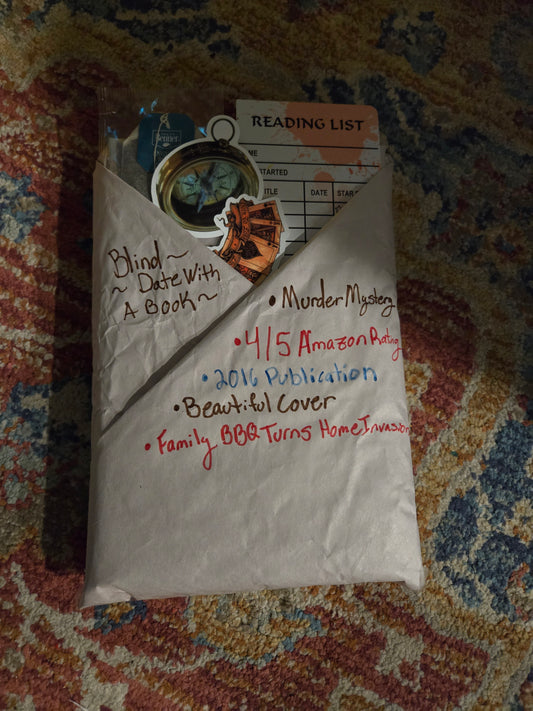 Benner
READING LIST
ME
STARTED
TITLE DATE STAR
Blind ~
~ Date With
A Book ~
• Murder Mystery
• 4/5 Amazon Rating
• 2016 Publication
• Beautiful Cover
• Family BBQ Turns Home Invasion